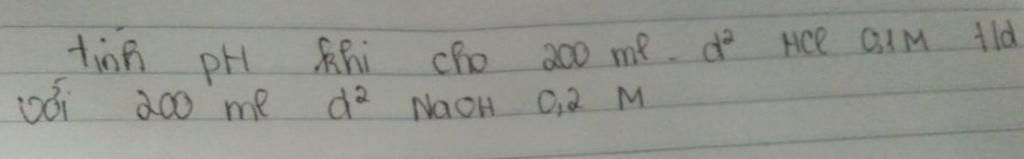 tính pH khi cho 200 ml. d² HCl 0,1M t/d
với 200 ml d² NaOH 0,2 M